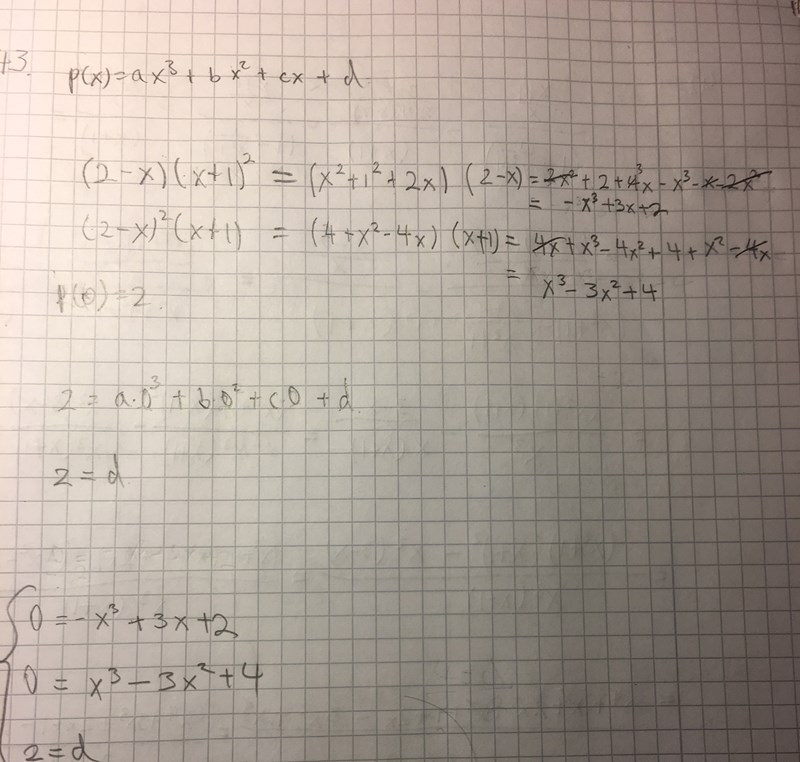 43.
p(x)=ax³+bx²+cx+d
(2-x)(x+1)² = (x²+1²+2x)(2-x)=2x²+2+4³x-x³-x-2x²
= -x³+3x+2
(2-x)²(x+1) = (4+x²-4x)(x+1)=4x+x³-4x²+4+x²-4x
= x³-3x²+4
p(0)=2.
2=a·0³+b·0²+c·0+d
2=d
0=-x³+3x+2
0=x³-3x²+4
2=d